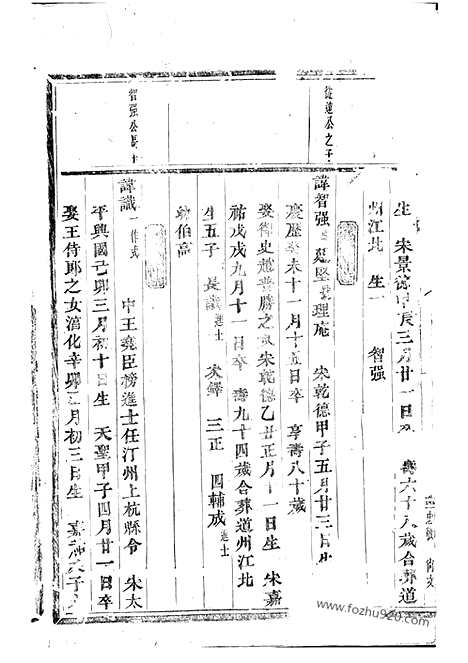 生 宋景德甲辰三月廿一日 壽六十八歲合葬道
州江北 生一 智强
從遠公之子
諱智强 廷堅 理庵 宋乾德甲子五月廿三日生
慶歷癸未十一月十五日卒 享壽八十歲
娶 御史趙普勝之女宋乾德乙丑正月十一日生 宋嘉
祐戊戌九月十一日卒 壽九十四歲合葬道州江北
生五子 長識進士 次鐸 三正 四輔成進士
幼伯高
智强公長子
諱識 一作式 中王堯臣榜進士任汀州上杭縣令 宋太
平興國己卯三月初十日生 天聖甲子四月廿一日卒
娶王侍郎之女淯化辛卯三月初三日生 嘉
www.fozhu920.com